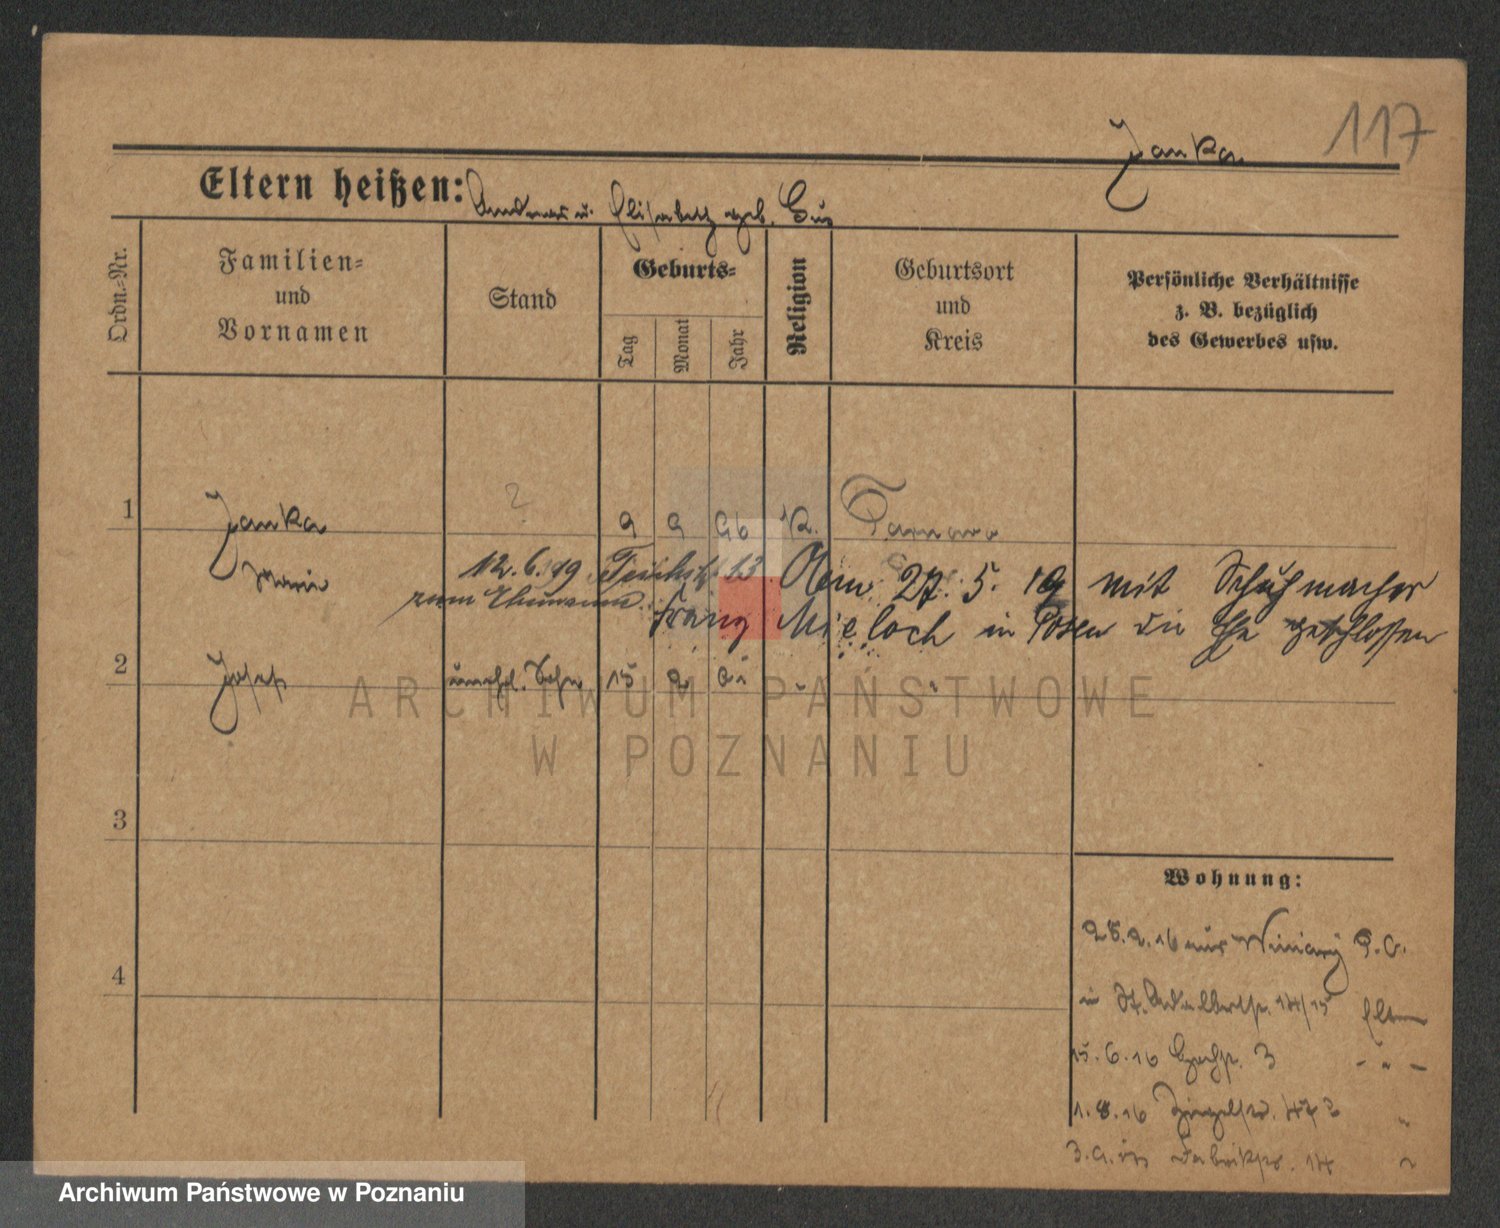 117
Janka
Eltern heißen: Andreas u. Elisabeth geb.
Ordn.=Nr.
Familien=
und
Vornamen
Stand
Geburts=
Tag
Monat
Jahr
Religion
Geburtsort
und
Kreis
Persönliche Verhältnisse
z. B. bezüglich
des Gewerbes usw.
1 Janka ? 9 9 96 K.
Marie 12.6.19 13 27. 5. 19 mit Schuhmacher
Franz Mieloch in Posen die Ehe geschlossen
2 Josef unehl. Sohn 15 2
3
4
Wohnung:
25.2.16 aus Winiary P.O.
in St. Adalbertstr. 14/15 Eltern
15.6.16 3 - " -
1.8.16 Ziegelstr. "
3.9. Fabrikstr. 14 "
ARCHIWUM PAŃSTWOWE
W POZNANIU
Archiwum Państwowe w Poznaniu